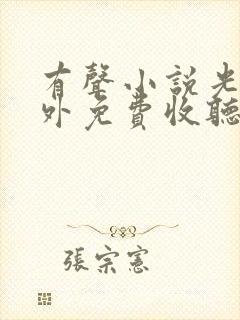 有聲小說光
外免費收聽
張宗憲